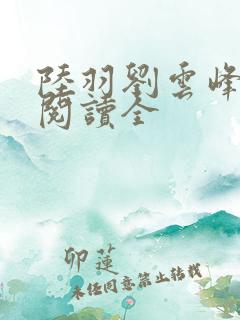 陸羽劉雲峰
閱讀全
卯蓮
未經同意禁止轉載